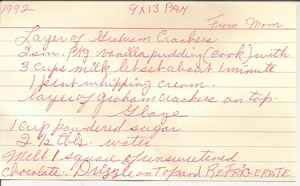 1992 9X13 PAN
From Mom
Layer of Graham Crackers
2 sm. pkg vanilla pudding (cook) with
3 cups milk let set about 1 minute
1 pint whipping cream.
layer of graham crackers on top.
Glaze
1 cup powdered sugar
2 ½ tbls. water
Melt 1 squad of unsweetened
chocolate. Drizzle on top and REFRIGERATE